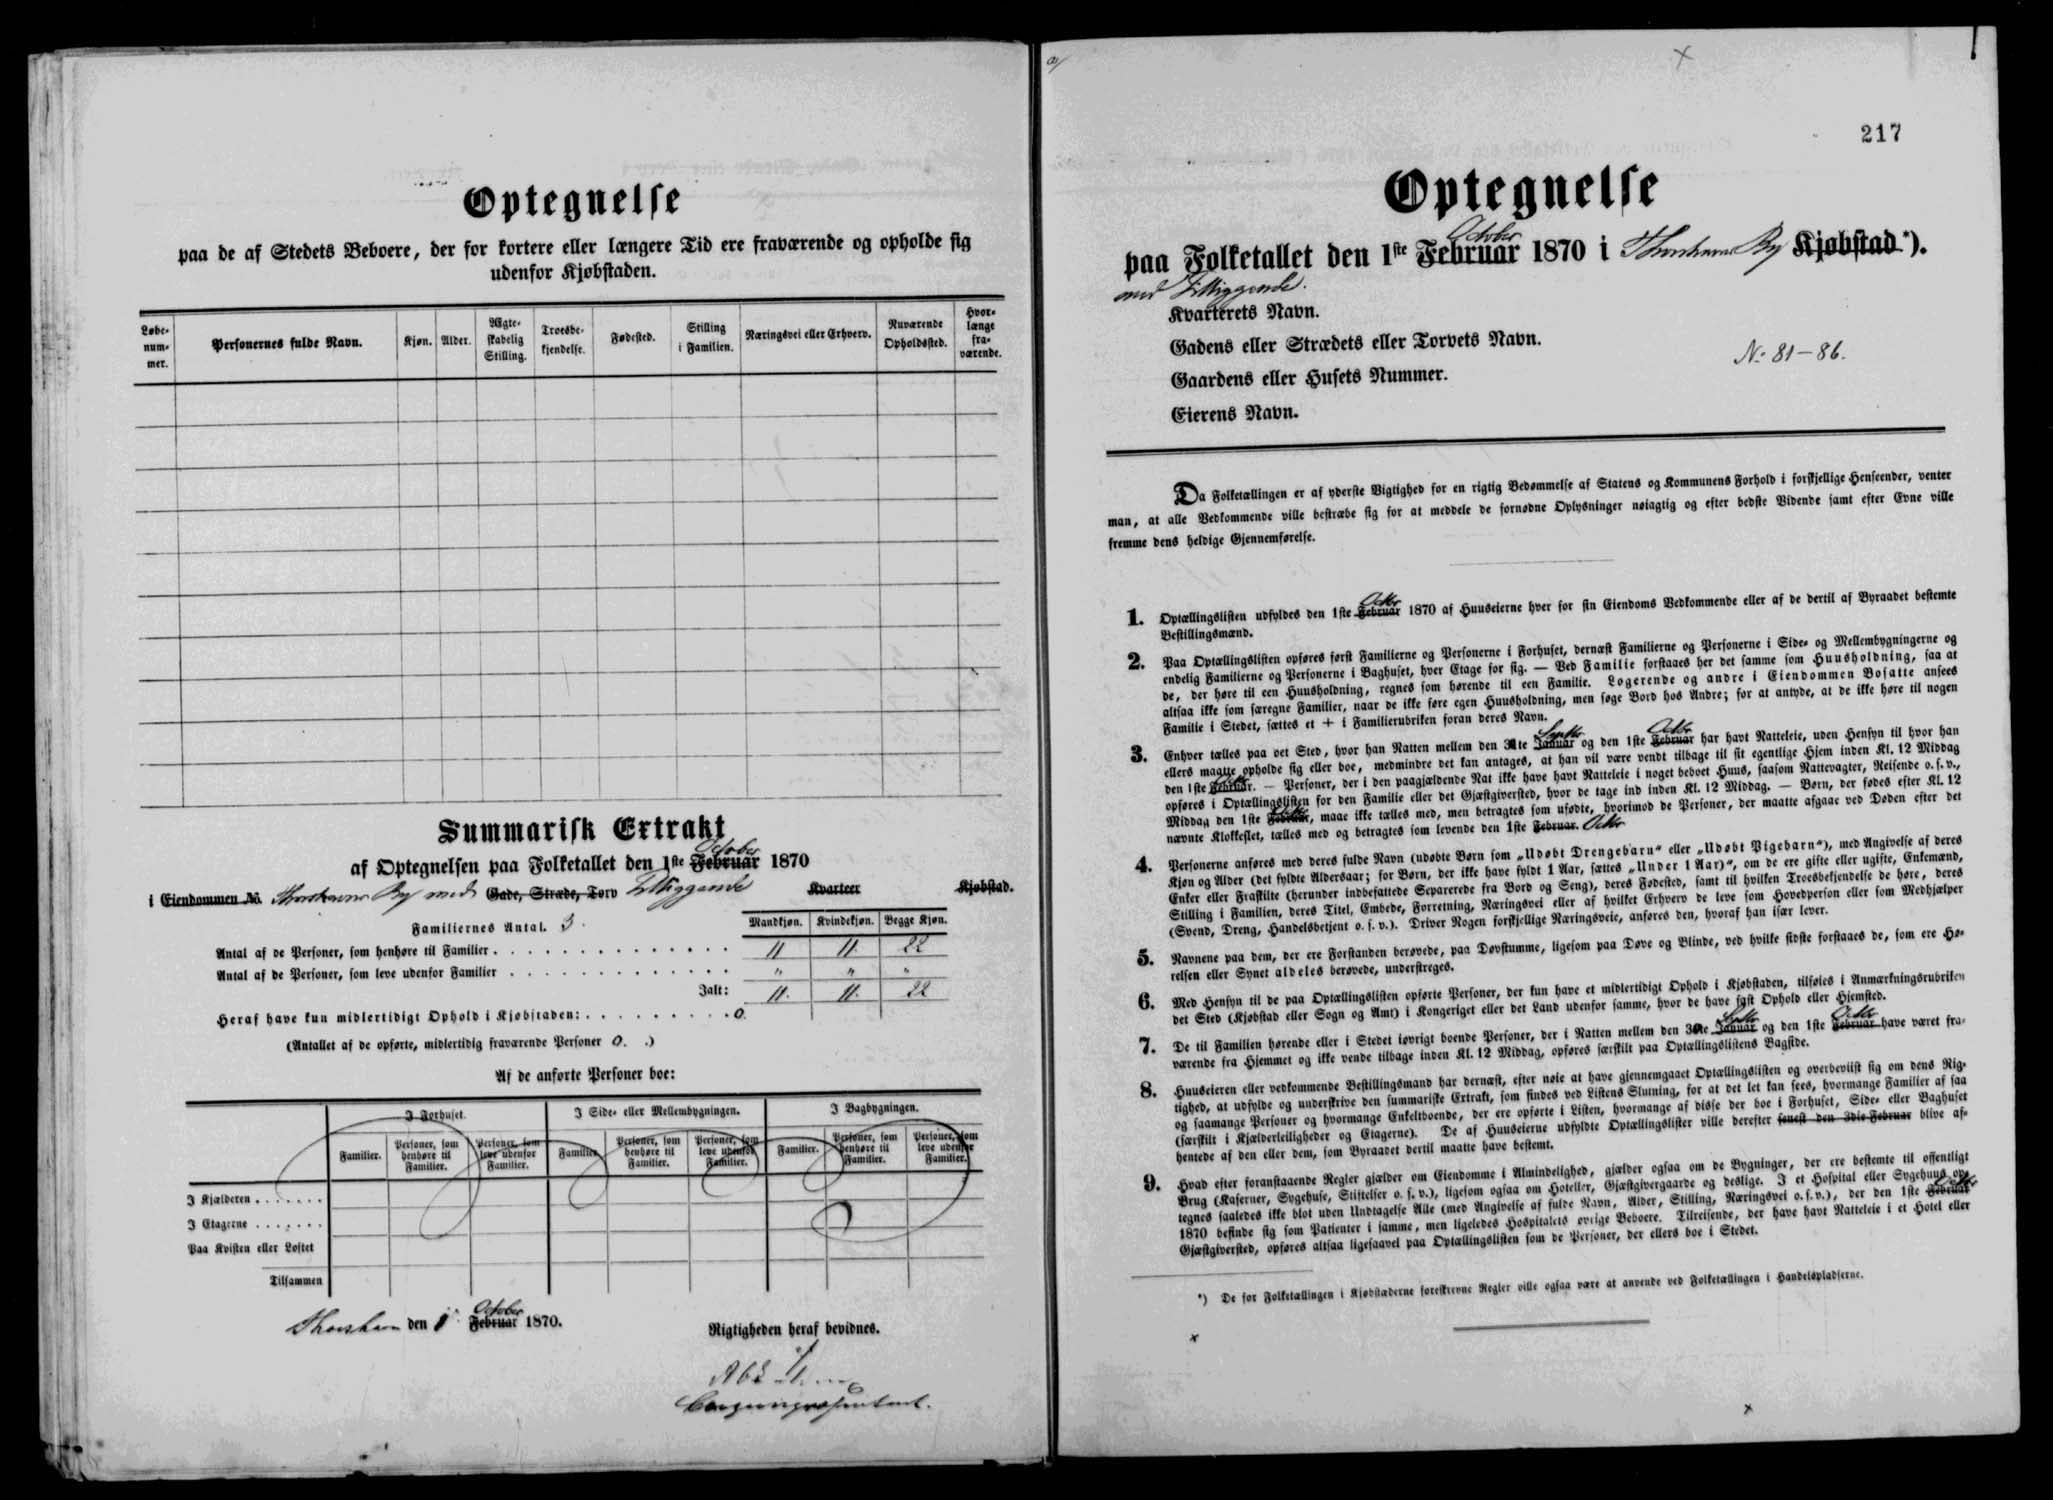 Optegnelse
paa de af Stedets Beboere, der for kortere eller længere Tid ere fraværende og opholde sig
udenfor Kjøbstaden.
Løbe-
num-
mer.
Personernes fulde Navn.
Kjøn.
Alder.
Ægte-
skabelig
Stilling.
Troesbe-
kjendelse.
Fødested.
Stilling
i Familien.
Næringsvei eller Erhverv.
Nuværende
Opholdssted.
Hvor-
længe
fra-
værende.
Summarisk Extrakt
October
af Optegnelsen paa Folketallet den 1ste Februar 1870
i Eiendommen No. Thorshavns By med Gade, Stræde, Torv Tilliggende Kvarteer Kjøbstad.
Familiernes Antal. 3.
Mandkjøn. Kvindekjøn. Begge Kjøn.
Antal af de Personer, som henhøre til Familier 11 11. 22
Antal af de Personer, som leve udenfor Familier " " "
Ialt: 11. 11. 22
Heraf have kun midlertidigt Ophold i Kjøbstaden: 0.
(Antallet af de opførte, midlertidig fraværende Personer 0. .)
Af de anførte Personer boe:
I Forhuset.
I Side- eller Mellembygningen.
I Bagbygningen.
Familier.
Personer, som
henhøre til
Familier.
Personer, som
leve udenfor
Familier.
Familier.
Personer, som
henhøre til
Familier.
Personer, som
leve udenfor
Familier.
Familier.
Personer, som
henhøre til
Familier.
Personer, som
leve udenfor
Familier.
I Kjælderen
I Etagerne
Paa Kvisten eller Loftet
Tilsammen
October
Thorshavn den 1 Februar 1870.
Rigtigheden heraf bevidnes.
217
Optegnelse
October
paa Folketallet den 1ste Februar 1870 i Thorshavns By Kjøbstad*).
med Tilliggende.
Kvarterets Navn.
Gadens eller Strædets eller Torvets Navn.
No 81-86.
Gaardens eller Husets Nummer.
Eierens Navn.
Da Folketællingen er af yderste Vigtighed for en rigtig Bedømmelse af Statens og Kommunens Forhold i forskjellige Henseender, venter
man, at alle Vedkommende ville bestræbe sig for at meddele de fornødne Oplysninger nøiagtig og efter bedste Vidende samt efter Evne ville
fremme dens heldige Gjennemførelse.
Octbr
1. Optællingslisten udfyldes den 1ste Februar 1870 af Huuseierne hver for sin Eiendoms Vedkommende eller af de dertil af Byraadet bestemte
Bestillingsmænd.
2. Paa Optællingslisten opføres først Familierne og Personerne i Forhuset, dernæst Familierne og Personerne i Side- og Mellembygningerne og
endelig Familierne og Personerne i Baghuset, hver Etage for sig. — Ved Familie forstaaes her det samme som Huusholdning, saa at
de, der høre til een Huusholdning, regnes som hørende til een Familie. Logerende og andre i Eiendommen Bosatte ansees
altsaa ikke som særegne Familier, naar de ikke føre egen Huusholdning, men søge Bord hos Andre; for at antyde, at de ikke høre til nogen
Familie i Stedet, sættes et + i Familierubriken foran deres Navn.
Septbr Octbr
3. Enhver tælles paa det Sted, hvor han Natten mellem den 30te Januar og den 1ste Februar har havt Natteleie, uden Hensyn til hvor han
ellers maatte opholde sig eller boe, medmindre det kan antages, at han vil være vendt tilbage til sit egentlige Hjem inden Kl. 12 Middag
Octbr
den 1ste Februar. — Personer, der i den paagjældende Nat ikke have havt Natteleie i noget beboet Huus, saasom Nattevagter, Reisende o. s. v.,
opføres i Optællingslisten for den Familie eller det Gjæstgiversted, hvor de tage ind inden Kl. 12 Middag. — Børn, der fødes efter Kl. 12
Octbr
Middag den 1ste Februar, maae ikke tælles med, men betragtes som ufødte, hvorimod de Personer, der maatte afgaae ved Døden efter det
nævnte Klokkeslet, tælles med og betragtes som levende den 1ste Februar. Octbr
4. Personerne anføres med deres fulde Navn (udøbte Børn som „Udøbt Drengebarn“ eller „Udøbt Pigebarn“), med Angivelse af deres
Kjøn og Alder (det fyldte Aldersaar; for Børn, der ikke have fyldt 1 Aar, sættes „Under 1 Aar)“, om de ere gifte eller ugifte, Enkemænd,
Enker eller Fraskilte (herunder indbefattede Separerede fra Bord og Seng), deres Fødested, samt til hvilken Troesbekjendelse de høre, deres
Stilling i Familien, deres Titel, Embede, Forretning, Næringsvei eller af hvilket Erhverv de leve som Hovedperson eller som Medhjælper
(Svend, Dreng, Handelsbetjent o. s. v.). Driver Nogen forskjellige Næringsveie, anføres den, hvoraf han især lever.
5. Navnene paa dem, der ere Forstanden berøvede, paa Døvstumme, ligesom paa Døve og Blinde, ved hvilke sidste forstaaes de, som ere Hø-
relsen eller Synet aldeles berøvede, understreges.
6. Med Hensyn til de paa Optællingslisten opførte Personer, der kun have et midlertidigt Ophold i Kjøbstaden, tilføies i Anmærkningsrubriken
det Sted (Kjøbstad eller Sogn og Amt) i Kongeriget eller det Land udenfor samme, hvor de have fast Ophold eller Hjemsted.
Septbr Octbr
7. De til Familien hørende eller i Stedet iøvrigt boende Personer, der i Natten mellem den 30te Januar og den 1ste Februar have været fra-
værende fra Hjemmet og ikke vende tilbage inden Kl. 12 Middag, opføres særskilt paa Optællingslistens Bagside.
8. Huuseieren eller vedkommende Bestillingsmand har dernæst, efter nøie at have gjennemgaaet Optællingslisten og overbeviist sig om dens Rig-
tighed, at udfylde og underskrive den summariske Extrakt, som findes ved Listens Slutning, for at det let kan sees, hvormange Familier af saa
og saamange Personer og hvormange Enkeltboende, der ere opførte i Listen, hvormange af disse der boe i Forhuset, Side- eller Baghuset
(særskilt i Kjælderleiligheder og Etagerne). De af Huuseierne udfyldte Optællingslister ville derefter senest den 3die Februar blive af-
hentede af den eller dem, som Byraadet dertil maatte have bestemt.
9. Hvad efter foranstaaende Regler gjælder om Eiendomme i Almindelighed, gjælder ogsaa om de Bygninger, der ere bestemte til offentligt
Brug (Kaserner, Sygehuse, Stiftelser o. s. v.), ligesom ogsaa om Hoteller, Gjæstgivergaarde og deslige. I et Hospital eller Sygehuus op-
Octbr
tegnes saaledes ikke blot uden Undtagelse Alle (med Angivelse af fulde Navn, Alder, Stilling, Næringsvei o. s. v.), der den 1ste Februar
1870 befinde sig som Patienter i samme, men ligeledes Hospitalets øvrige Beboere. Tilreisende, der have havt Natteleie i et Hotel eller
Gjæstgiversted, opføres altsaa ligesaavel paa Optællingslisten som de Personer, der ellers boe i Stedet.
*) De for Folketællingen i Kjøbstæderne foreskrevne Regler ville ogsaa være at anvende ved Folketællingen i Handelspladserne.